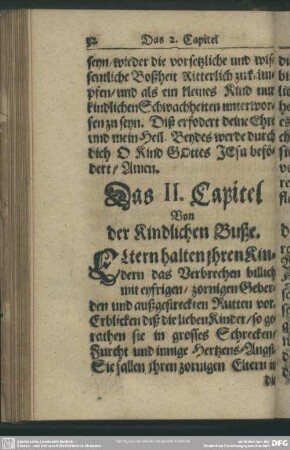 92 Das 2. Capitel
seyn/ wieder die vorsetzliche und wis-
sentliche Boßheit Ritterlich zu käm-
pfen/ und als ein kleines Kind nur
kindlichen Schwachheiten unterwor-
fen zu seyn. Diß erfodert deine Ehre
und mein Heil. Beydes werde durch
dich O Kind GOttes JEsu beför-
dert/ Amen.
Das II. Capitel
Von
der Kindlichen Busse.
ELtern halten jhren Kin-
dern das Verbrechen billich
mit eyfrigen/ zornigen Geber-
den und außgestreckten Rutten vor.
Erblicken diß die lieben Kinder/ so ge-
rathen sie in grosses Schrecken/
Furcht und innige Hertzens-Angst.
Sie fallen jhren zornigen Eltern in
die